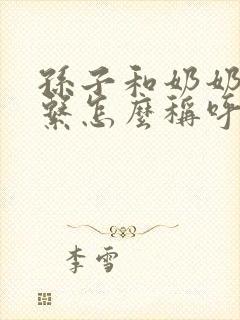 孫子和奶奶
繫怎麼稱呼
李雪